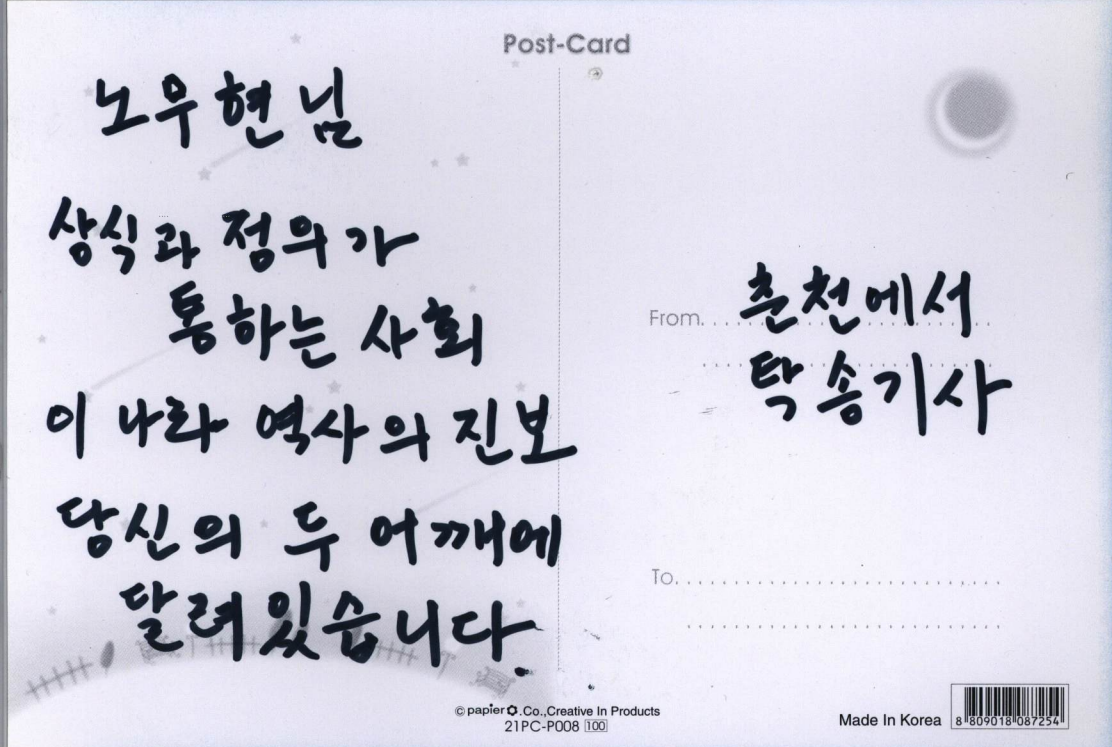 Post-Card
노우현 님
상식과 정의가
통하는 사회
이 나라 역사의 진보
당신의 두 어깨에
달려있습니다.
From.
춘천에서
탁송기사
To.
© papier Co.,Creative In Products
21PC-P008 100
Made In Korea
8 809018 087254